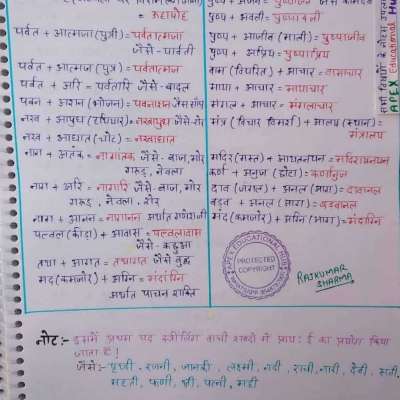 = ऊहापोह
पर्वत + आत्मजा (पुत्री) = पर्वतात्मजा
जैसे - पार्वती
पर्वत + आत्मज (पुत्र) = पर्वतात्मज
पर्वत + अरि = पर्वतारि जैसे - बादल
पवन + अशन (भोजन) = पवनाशन जैसे सांप
नख + आयुध (हथियार) = नखायुध जैसे - शेर
नख + आघात (चोट) = नखाघात
नाग + आतंक = नागातंक जैसे - बाज, मोर
गरूड़, नेवला
नाग + अरि = नागारि जैसे - बाज, मोर
गरूड़, नेवला, शेर
नाग + आनन = नागानन अर्थात गणेशजी
पल्वल (कीड़ा) + आवास = पल्वलावास
जैसे - कछुआ
तथा + आगत = तथागत जैसे बुद्ध
मंद (कमजोर) + अग्नि = मंदाग्नि
अर्थात पाचन शक्ति
पुष्प + अवली = पुष्पावली
पुष्प + आजीव (माली) = पुष्पाजीव
पुष्प + अप्रिय = पुष्पाप्रिय
वाम (विपरित) + आचार = वामाचार
माया + आचार = मायाचार
मंगल + आचार = मंगलाचार
मंत्र (विचार विमर्श) + आलय (स्थान) =
मंत्रालय
कर्ण + अनुज (छोटा) = कर्णानुज
दाव (जंगल) + अनल (आग) = दावानल
बड़व + अनल (आग) = बड़वानल
मंद (कमजोर) + अग्नि (आग) = मंदाग्नि
APEX EDUCATIONAL HUB
PROTECTED
COPYRIGHT
RAJKUMAR
SHARMA
नोट :- इसमें प्रथम पद स्त्रीलिंग वाची शब्दों में प्राय: ई का प्रयोग किया
जाता है !
जैसे :- पृथ्वी, रजनी, जानकी, लक्ष्मी, नदी, रानी, नारी, देवी, सती,
महती, फणी, श्री, पत्नी, मही